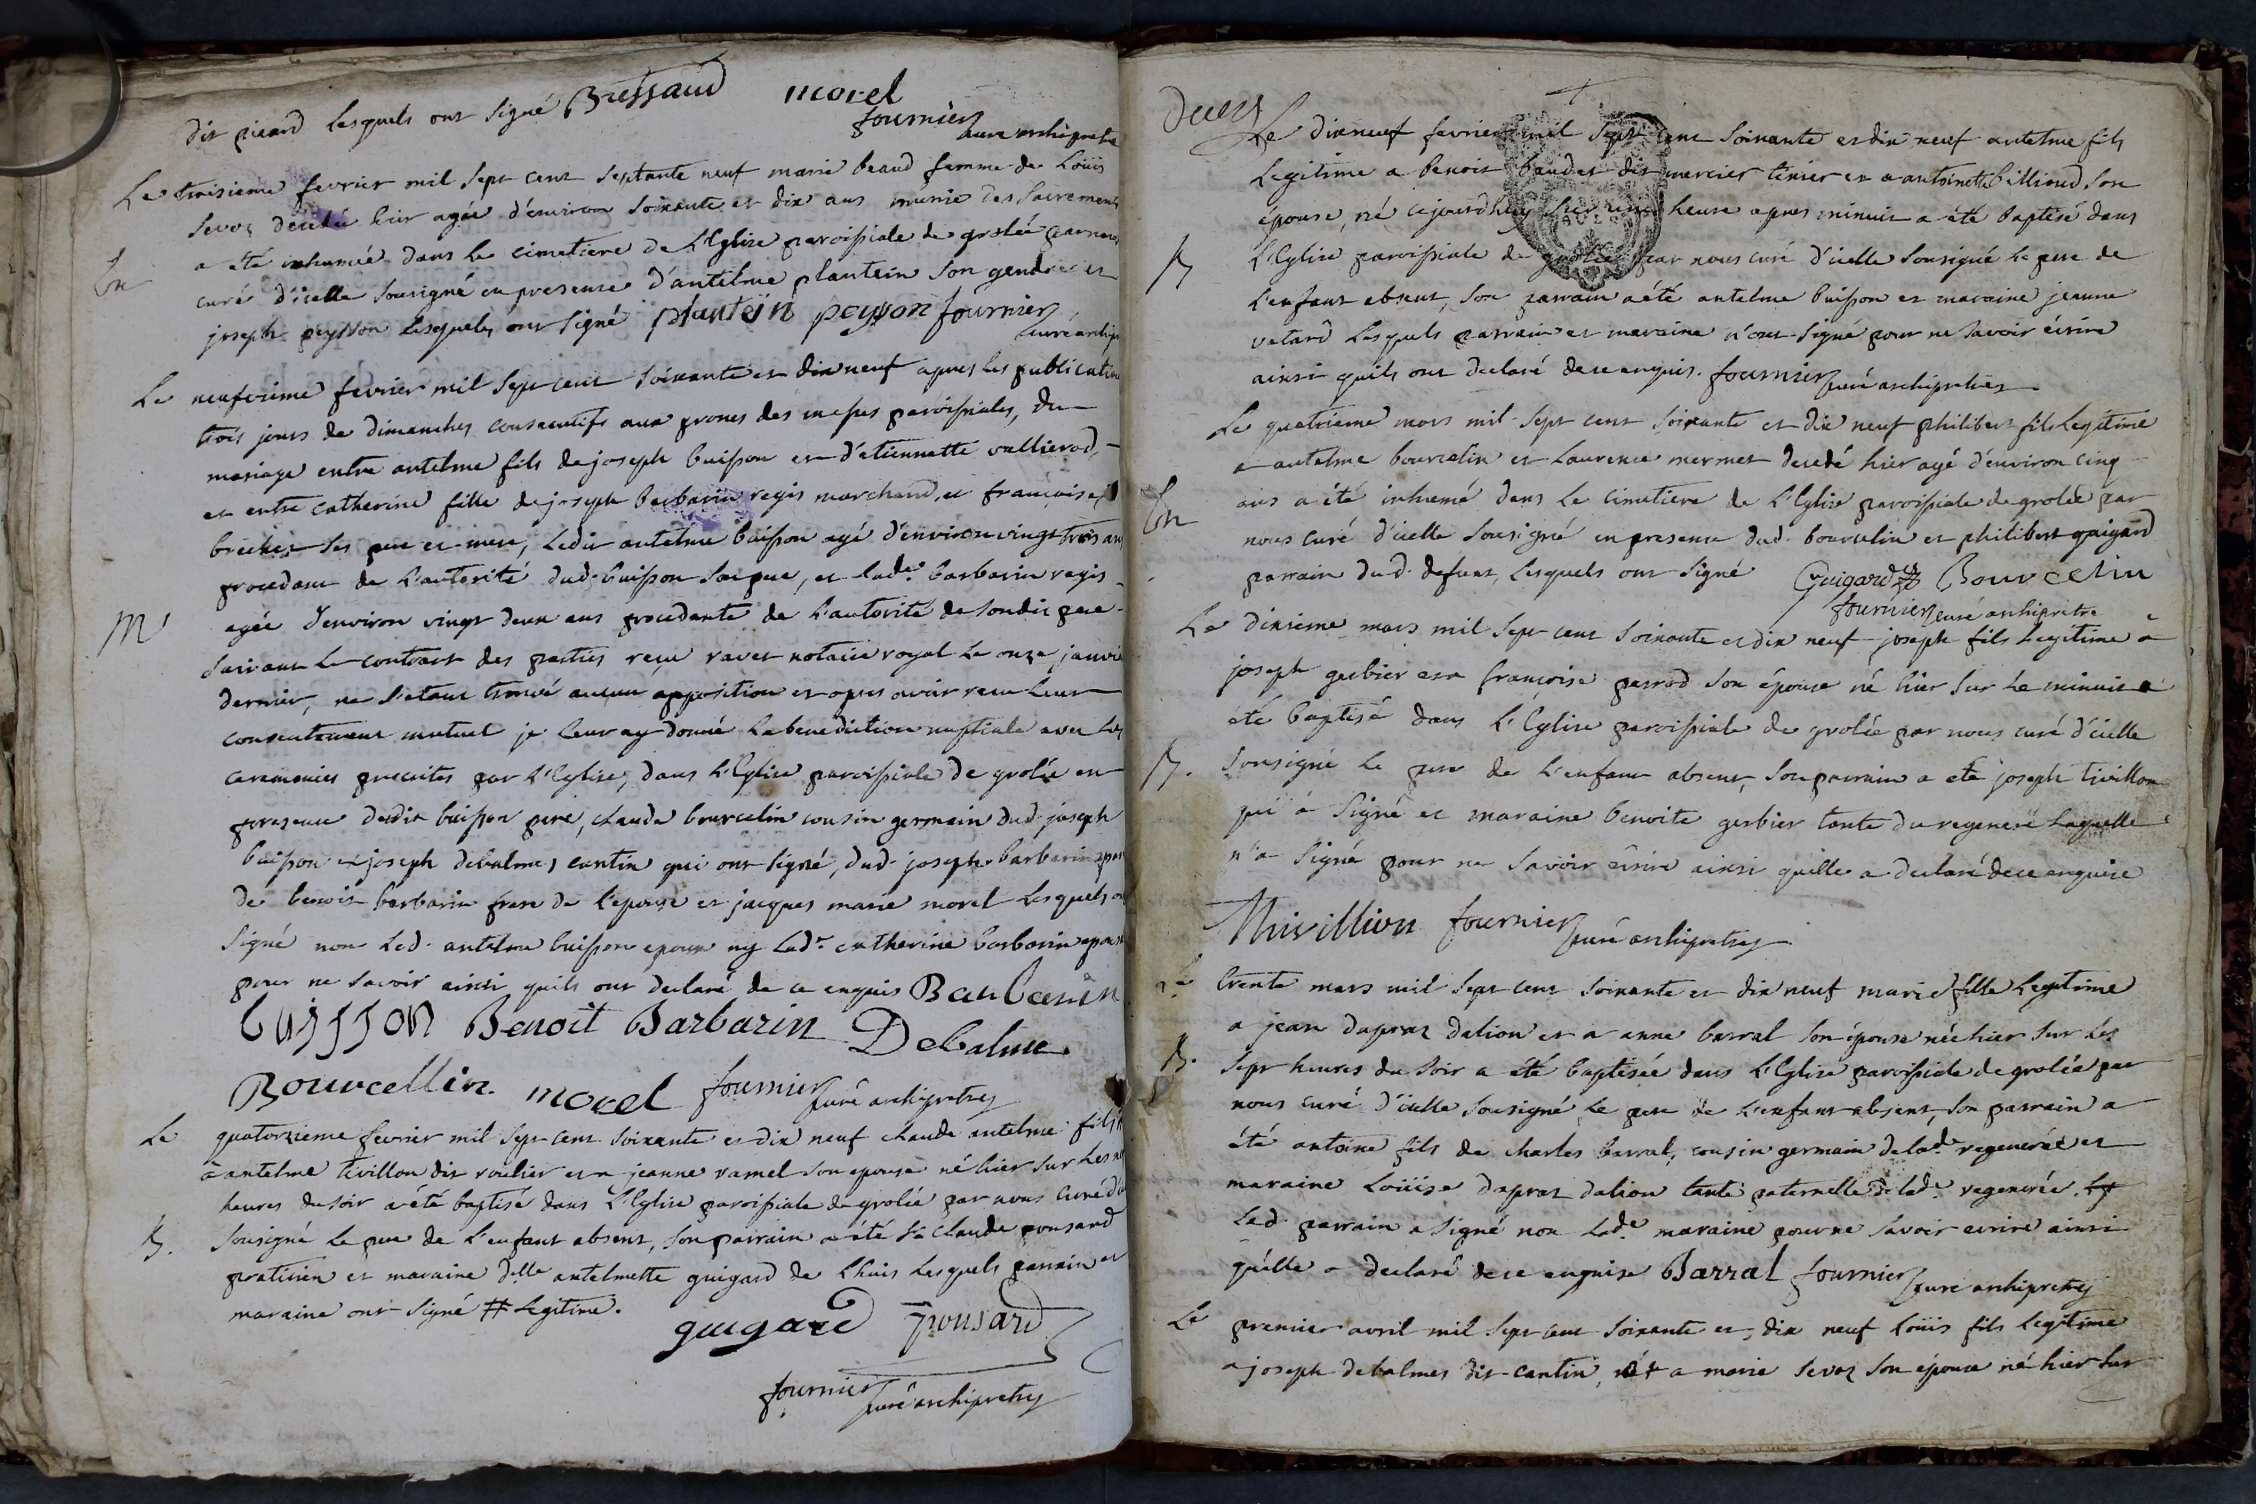 dit picard lesquels ont signé Bressaud morel
fournier curé archipretre
Le troisieme fevrier mil sept cent septante neuf marie beaud femme de Loüis
sevoz décédée hier agée d'environ soixante et dix ans munie des sacrements
a été inhumée dans le cimetiere de L'Eglise paroissiale de grolée par nous
En
curé d'icelle sousigné en presence d'antelme plantein son gendre et
joseph peysson lesquels ont signé plantein peysson fournier
curé archip
Le neufvieme fevrier mil sept cent soixante et dix neuf apres les publications
trois jours de dimanches consecutifs aux prones des messes paroissiales, du
mariage entre antelme fils de joseph buisson et d'étiennette vallierod
et entre catherine fille de joseph barbarin regis marchand, et françoise
ses pere et mere, ledit antelme buisson agé d'environ vingt trois ans
procedant de l'autorité dud. buisson son pere, et lade. barbarin regis
agée d'environ vingt deux ans procedante de l'autorité de sondit pere
M
suivant le contract des parties reçu ravet notaire royal le onze janvier
dernier, ne s'etant trouvé aucune opposition et apres avoir reçu leur
consentement mutuel je leur ay donné la benediction nuptiale avec les
ceremonies prescrites par L'Eglise, dans L'Eglise paroissiale de grolée en
presence dudit buisson pere, claude bourcelin cousin germain dud. joseph
buisson et joseph debalmes cantin qui ont signé, dud. joseph barbarin
de benoit barbarin frere de l'epouse et jacques marie morel lesquels ont
signé non led. antelme buisson epoux ny lade. catherine barbarin epouse
pour ne savoir ainsi quils ont declaré de ce enquis Barbarin
buisson Benoit Barbarin Debalme
Bourcellin. morel fournier curé archipretre
Le quatorzieme fevrier mil sept cent soixante et dix neuf claude antelme fils #
a antelme tivillon dit roulier et a jeanne ramel son epouse né hier sur les
heures du soir a été baptisé dans L'Eglise paroissiale de grolée par nous curé d'
B.
sousigné le pere de l'enfant absent, son parrain a été sr. claude ponsard
praticien et maraine dlle antelmette guigard de Lhuis lesquels parrain et
maraine ont signé # legitime.
guigard ponsard
fournier curé archipretre
Le dixneuf fevrier mil sept cent soixante et dix neuf antelme fils
Legitime a benoit baudet dit mercier et a antoinette billioud son
epouse, né cejourdhuy heure apres minuit a été baptisé dans
B
L'Eglise paroissiale de grolée par nous curé d'icelle sousigné le pere de
l'enfant absent, son parrain a été antelme buisson et maraine jeanne
vetard lesquels parrain et maraine n'ont signé pour ne savoir écrire
ainsi quils ont declaré de ce enquis. fournier curé archipretre
Le quatrieme mars mil sept cent soixante et dix neuf philibert fils legitime
a antelme bourcelin et Laurence mermet decedé hier agé d'environ cinq
ans a été inhumé dans le cimetiere de L'Eglise paroissiale de grolée par
En
nous curé d'icelle sousigné en presence dud. bourcelin et philibert guigard
parrain dud. defunt, lesquels ont signé Guigard Bourcelin
fournier curé archipretre
Le dixieme mars mil sept cent soixante et dix neuf joseph fils legitime a
joseph gerbier et a françoise perrod son épouse né hier sur le minuit a
été baptisé dans L'Eglise paroissiale de grolée par nous curé d'icelle
B.
sousigné le pere de l'enfant absent, son parrain a été joseph tivillon
qui a signé et maraine benoite gerbier tante du regeneré laquelle
n'a signé pour ne savoir écrire ainsi quelle a declaré de ce enquise
Thivillion fournier curé archipretre
Le trente mars mil sept cent soixante et dix neuf marie fille legitime
a jean dupraz dalion et a anne barral son épouse née hier sur les
B.
sept heures du soir a été baptisée dans L'Eglise paroissiale de grolée par
nous curé d'icelle sousigné le pere de l'enfant absent, son parrain a
été antoine fils de charles barral, cousin germain de lade. regenerée et
maraine Loüise dupraz dalion tante paternelle de lade. regenerée.
Led. parrain a signé non lade. maraine pour ne savoir ecrire ainsi
quelle a declaré de ce enquise Barral fournier curé archipretre
Le premier avril mil sept cent soixante et dix neuf Loüis fils legitime
a joseph debalmes dit cantin, et a marie sevoz son épouse né hier sur